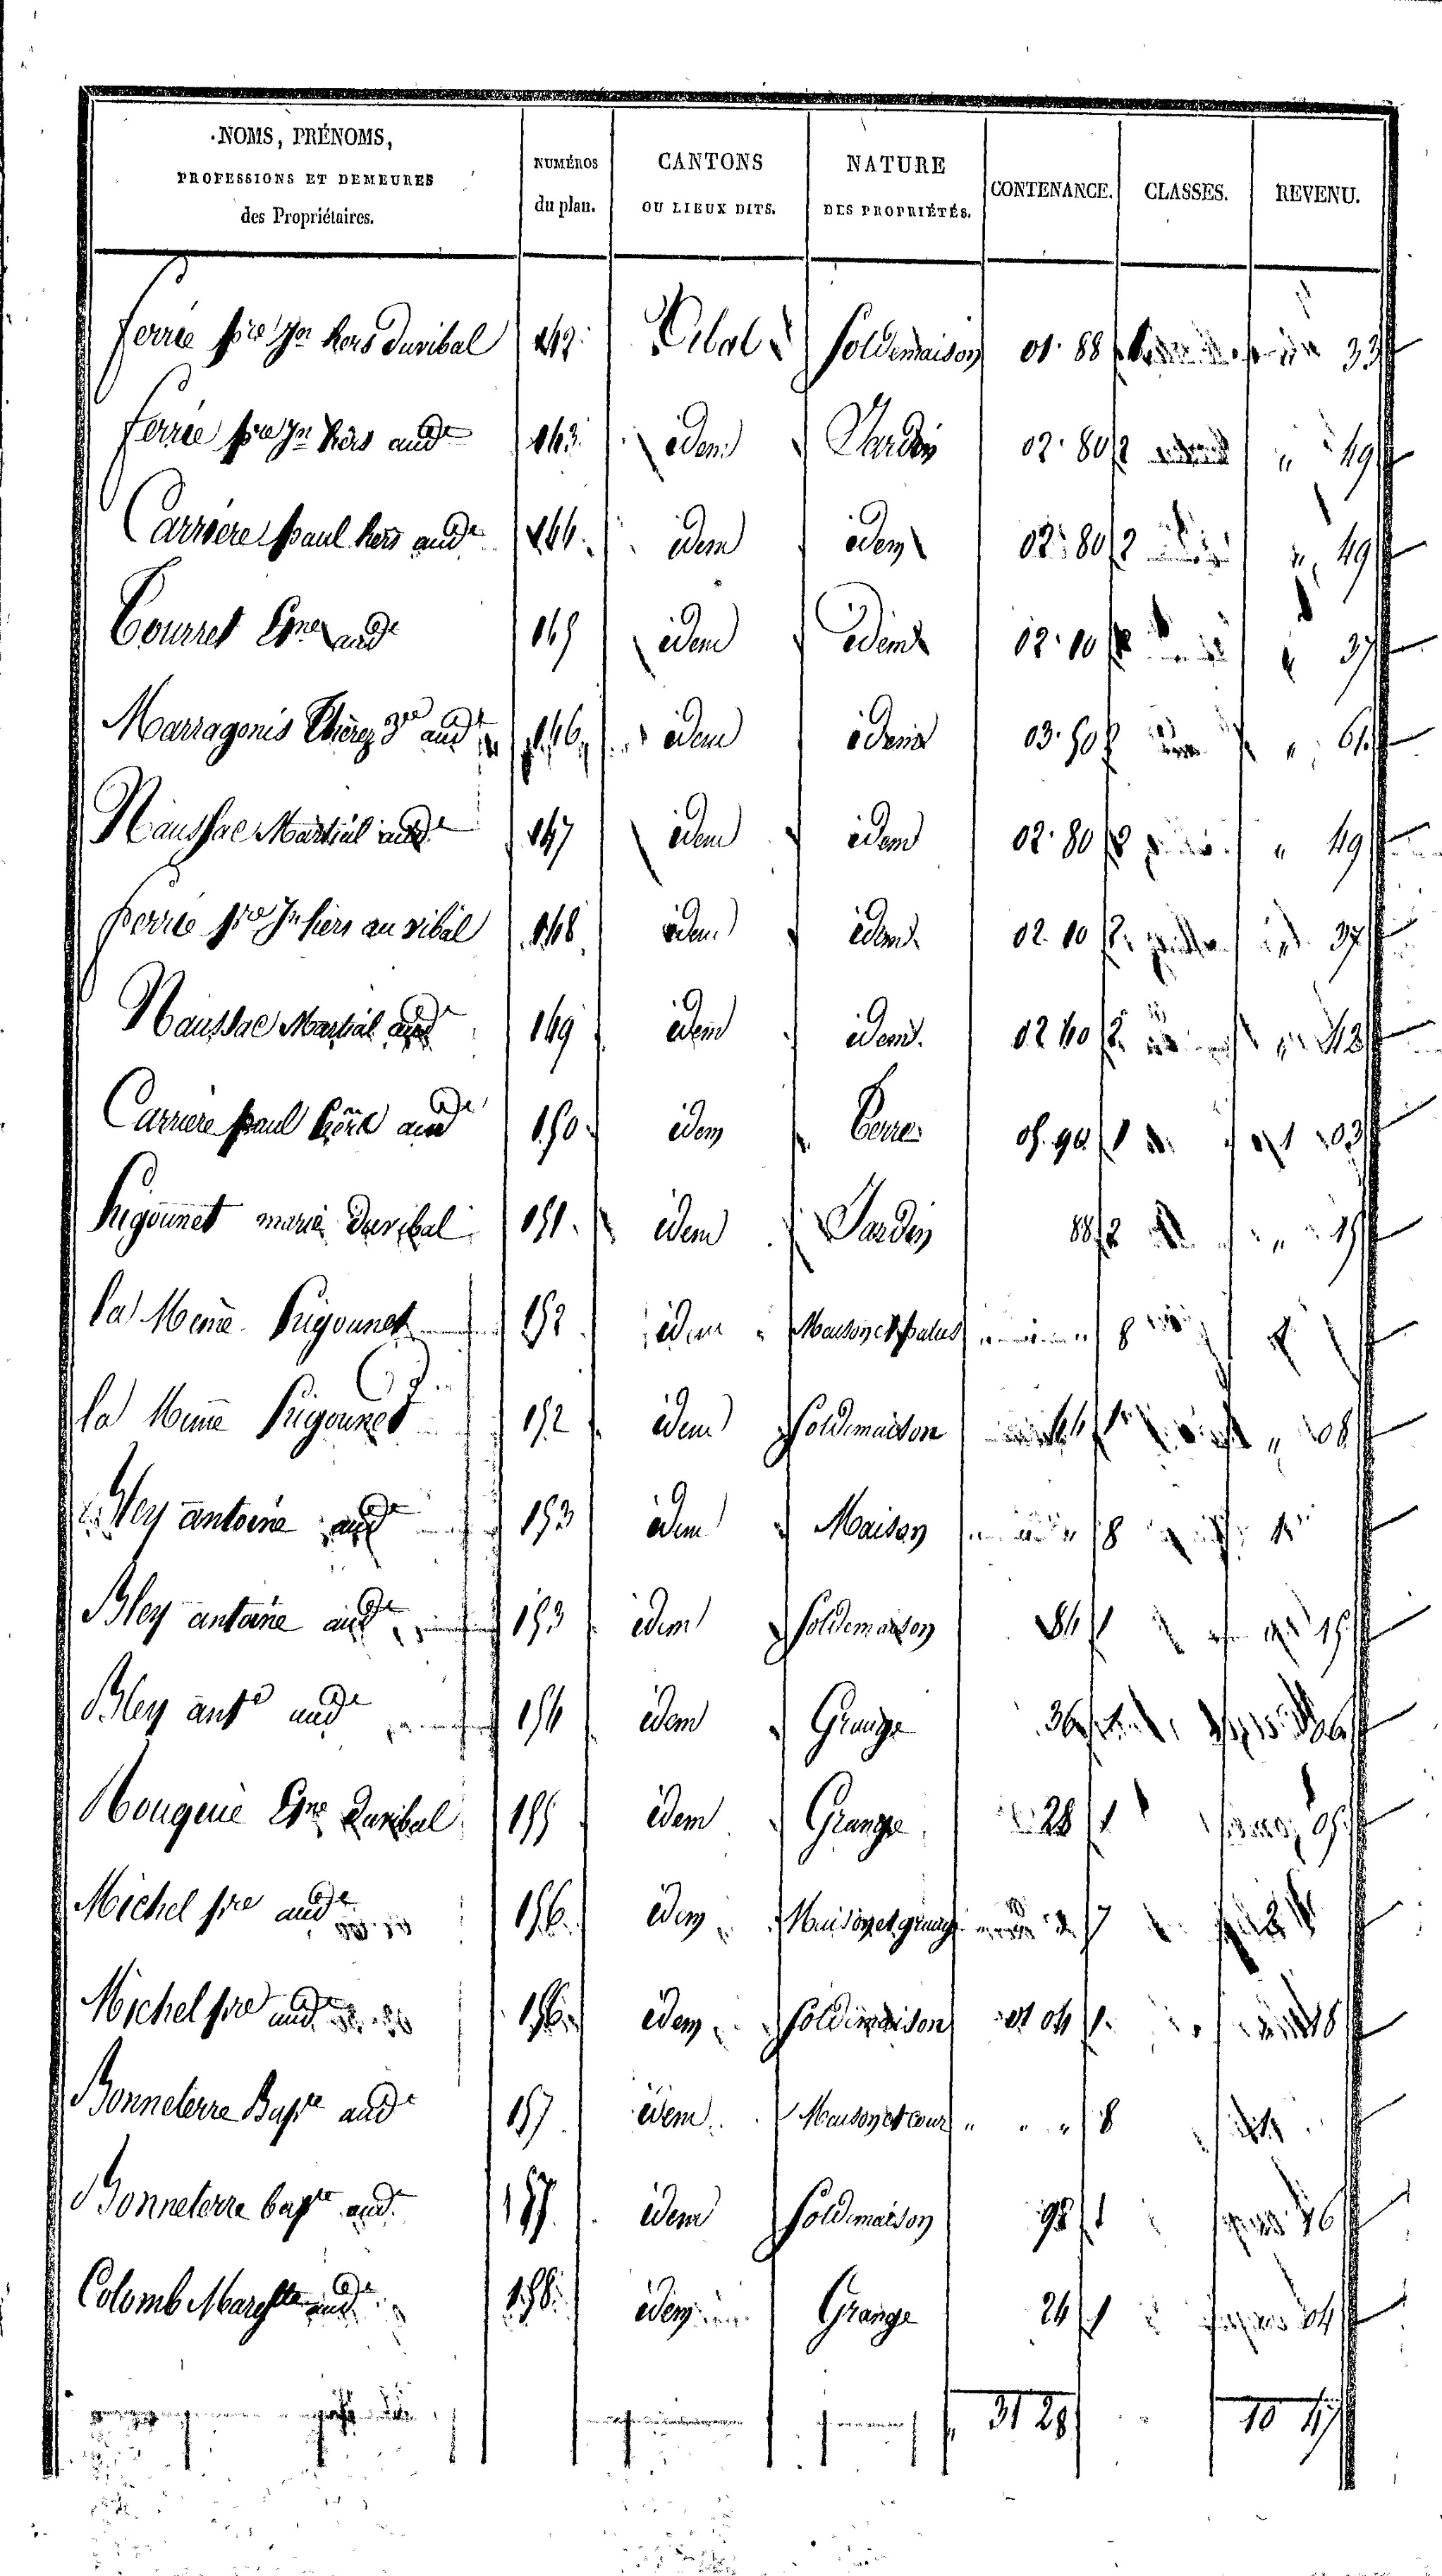 NOMS, PRÉNOMS, PROFESSIONS ET DEMEURES des Propriétaires. | NUMÉROS du plan. | CANTONS OU LIEUX DITS. | NATURE DES PROPRIÉTÉS. | CONTENANCE. | CLASSES. | REVENU.
ferrié pre jn hers du vibal 142 Vibal Sol de maison 01 88 33
ferrié pre jn hers aude 143 idem Jardin 02 80 2 " 49
Carriere paul hers aude 144 idem idem 02 80 2 " 49
Tourret Ene aude 145 idem idem 02 10 2 " 37
Marragonis aude 146 idem idem 03 50 2 " 61
Naussac Martial aude 147 idem idem 02 80 2 " 49
ferrié pre jn hers au vibal 148 idem idem 02 10 2 37
Naussac Martial aude 149 idem idem 02 40 2 42
Carriere paul aude 150 idem Terre 05 90 1 03
Prigounet marie du vibal 151 idem Jardin 88 2 " 15
la Meme Prigounet 152 idem Maison et patus " 8
la Meme Prigounet 152 idem Sol de maison 44 1 " 08
Bley antoine aude 153 idem Maison " 8
Bley antoine aude 153 idem Sol de maison 84 1 15
Bley ante aude 154 idem Grange 36 06
Nougerie Ene du vibal 155 idem Grange 28 1 05
Michel pre aude 156 idem Maison et grange 7
Michel pre aude 156 idem Sol de maison 01 04 1 18
Bonneterre Bapte aude 157 idem Maison et cour " " " 8
Bonneterre bapte aude 157 idem Sol de maison 92 1 16
Colomb aude 158 idem Grange 24 1 04
31 28 10 47